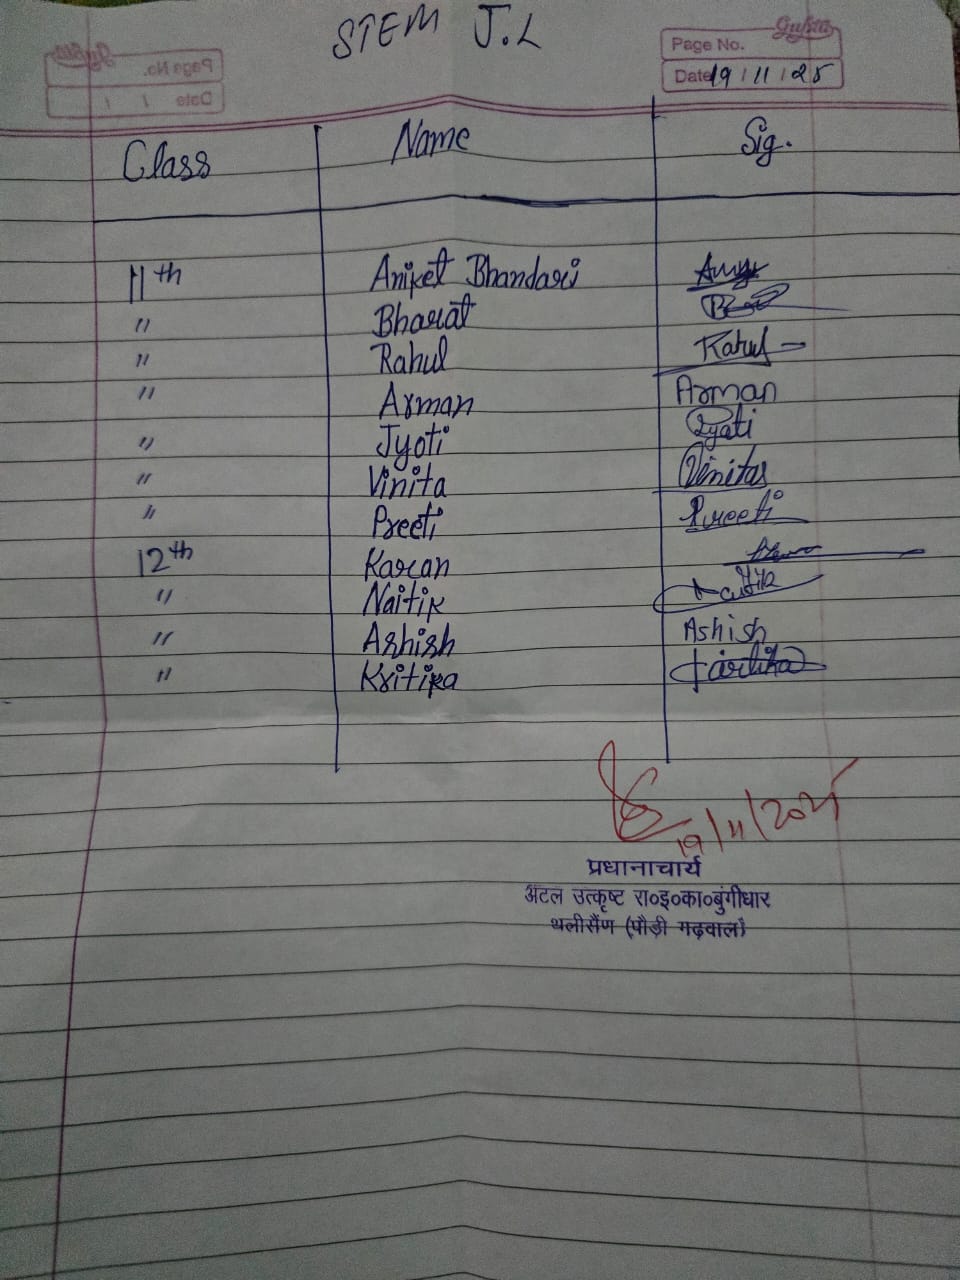 STEM J.L
Gupta
Page No.
Date 19/11/25
Class Name Sig.
11th Aniket Bhandari
" Bharat
" Rahul Rahul
" Arman Arman
" Jyoti Jyoti
" Vinita Vinita
" Preeti Preeti
12th Karan
" Naitik Naitik
" Ashish Ashish
" Kritika Kartika
19/11/2025
प्रधानाचार्य
अटल उत्कृष्ट रा०इ०का०बुंगीधार
थलीसैंण (पौड़ी गढ़वाल)